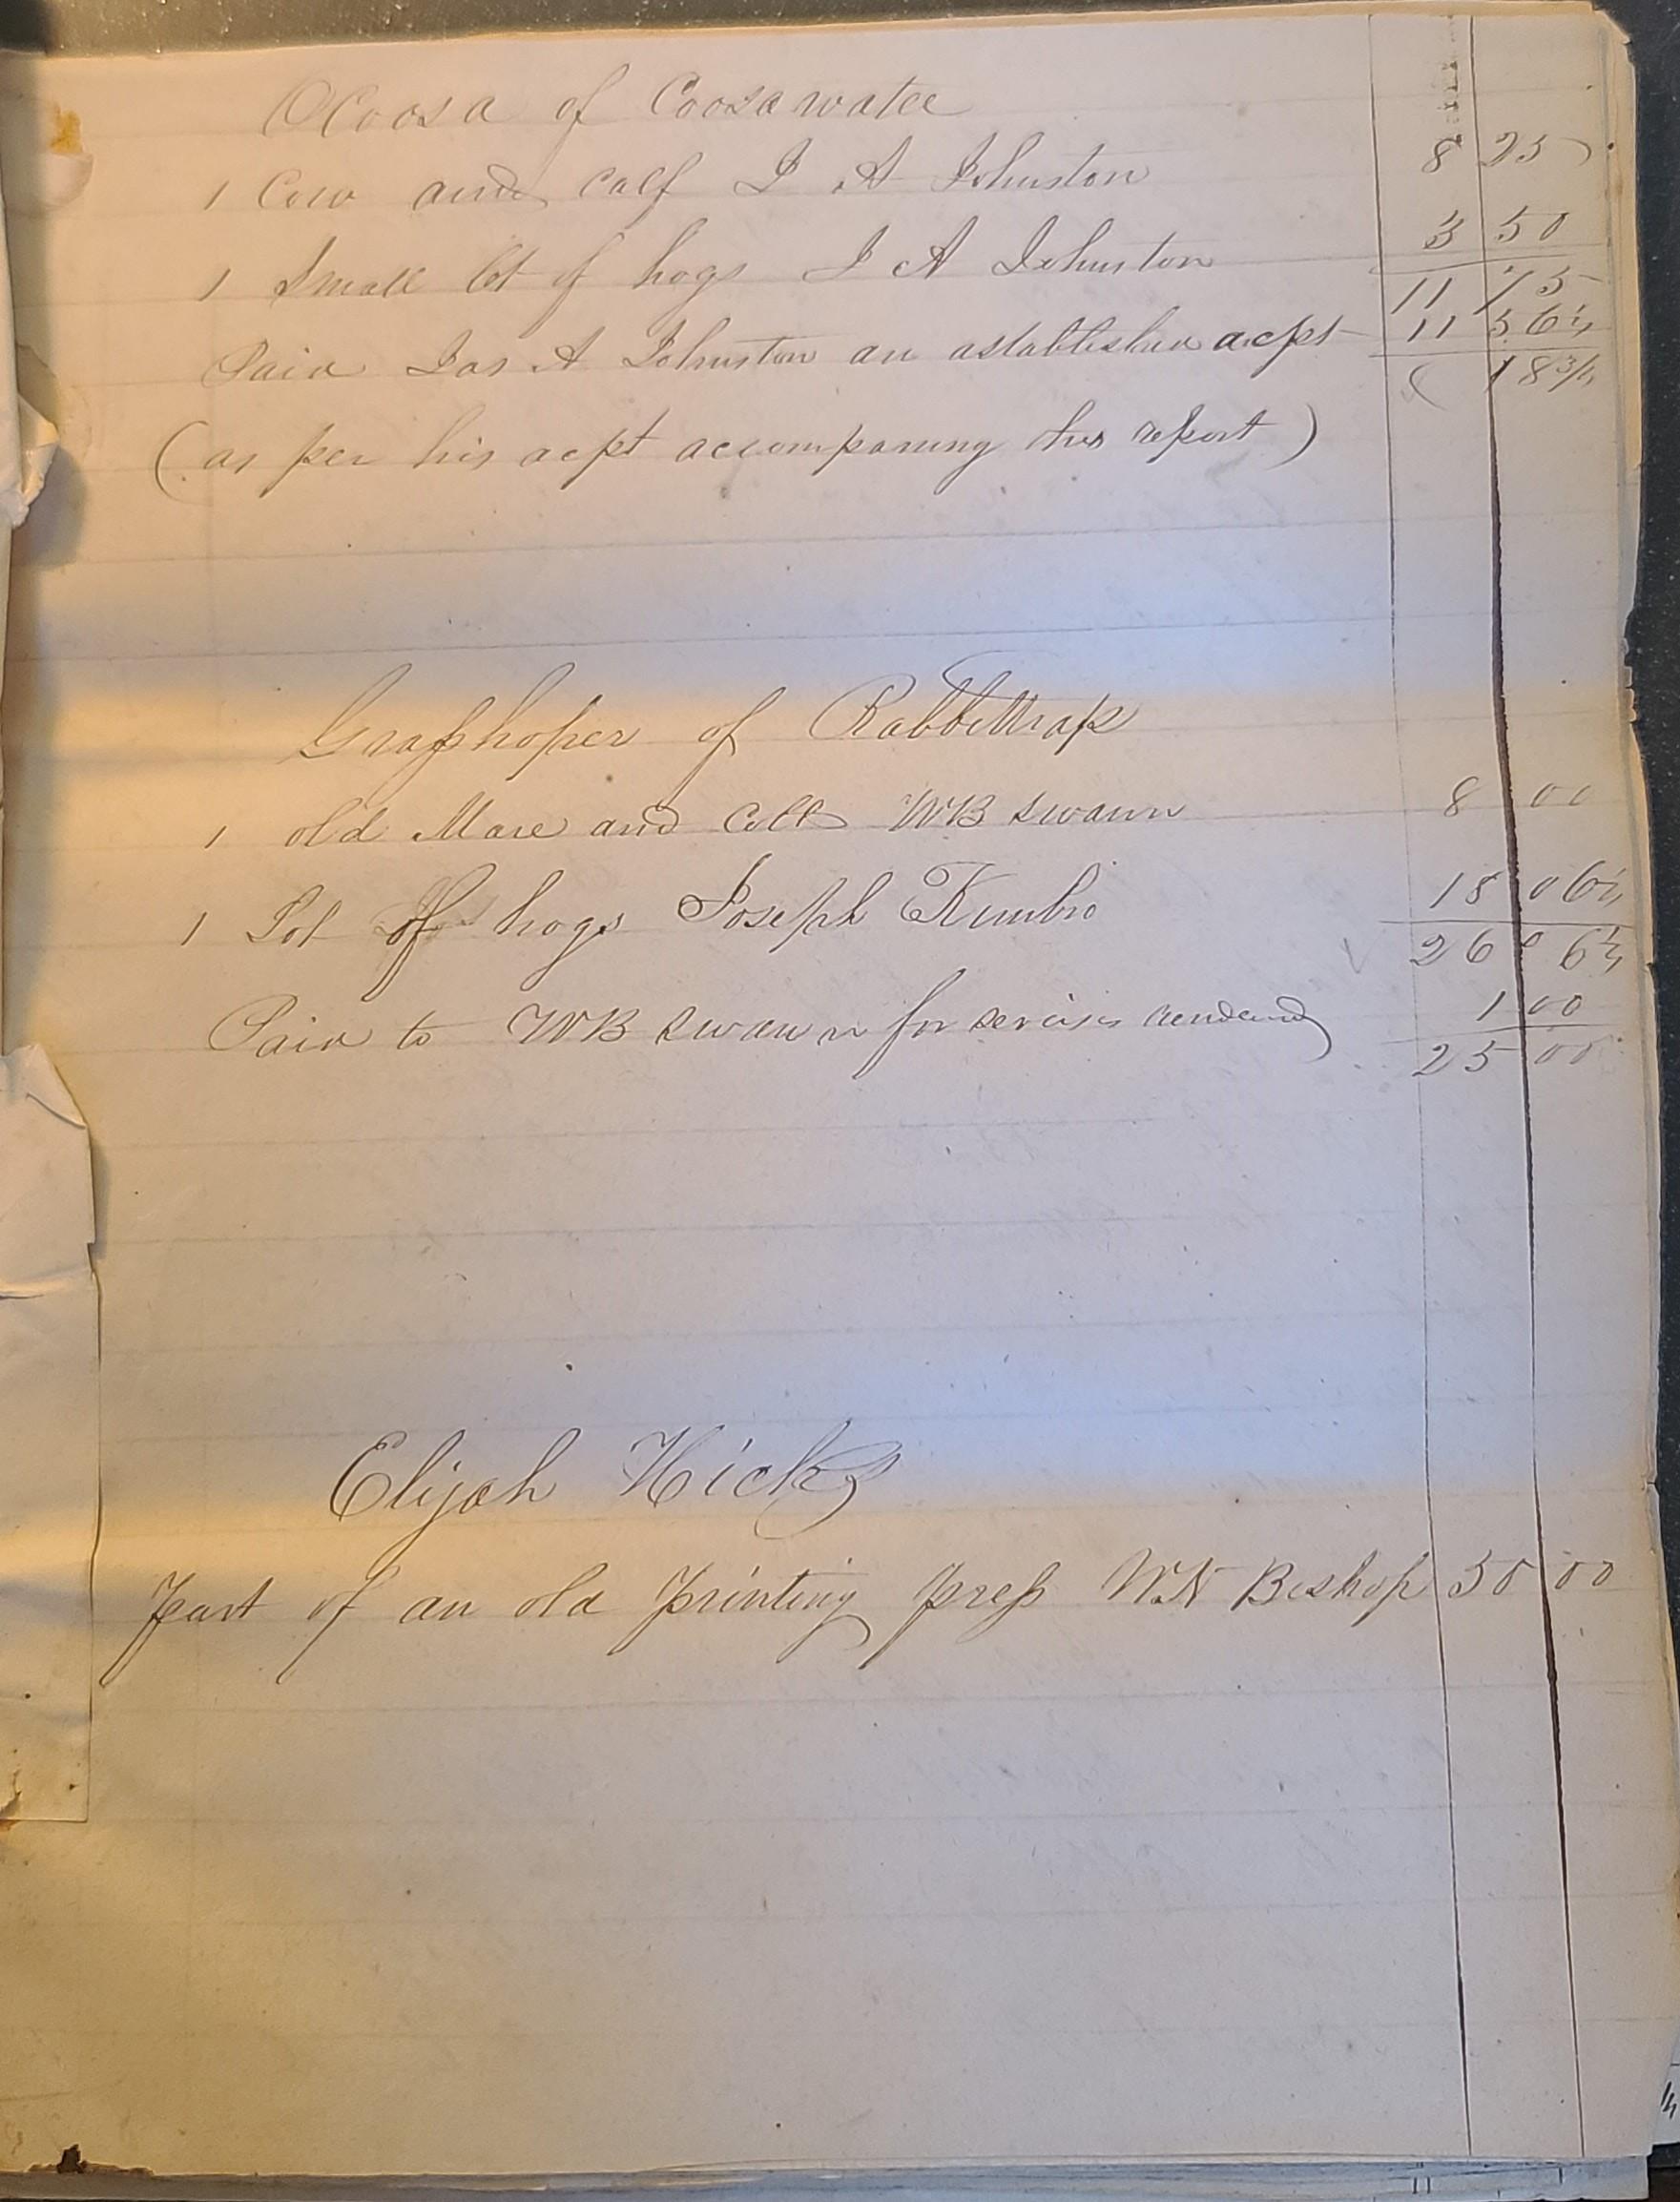 OCoosa of Coosawatee
1 Cow and calf J A Johnston 8 25
1 Small lot of hogs J A Johnston 3 50
11 75
Paid Jas A Johnston an astablished acpt 11 56¼
18¾
(as per his acpt accompaning this report)
Grasshoper of Rabbittrap
1 old Mare and Colt WB Swann 8 00
1 Lot of hogs Joseph Kimbro 18 06¼
26 06¼
Paid to WB Swann for servises rendered 1 00
25
Elijah Hicks
part of an old printing press WN Bishop 50 00